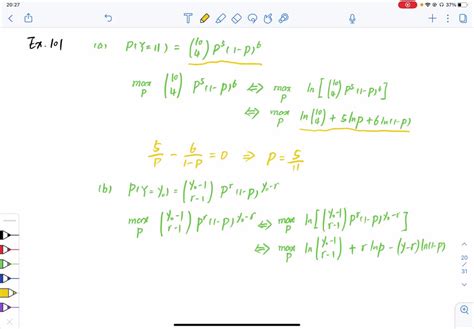 20:27
37%
Ex.101 (a) P(Y=11) = (10 4) p^5 (1-p)^6
max p (10 4) p^5 (1-p)^6 ⇔ max p ln[(10 4) p^5 (1-p)^6]
⇔ max p ln(10 4) + 5lnp + 6ln(1-p)
5/p - 6/(1-p) = 0 ⇒ p = 5/11
(b) P(Y=y₀) = (y₀-1 r-1) p^r (1-p)^(y₀-r)
max p (y₀-1 r-1) p^r (1-p)^(y₀-r) ⇔ max p ln[(y₀-1 r-1) p^r (1-p)^(y₀-r)]
⇔ max p ln(y₀-1 r-1) + r lnp - (y-r) ln(1-p)
20
/
31